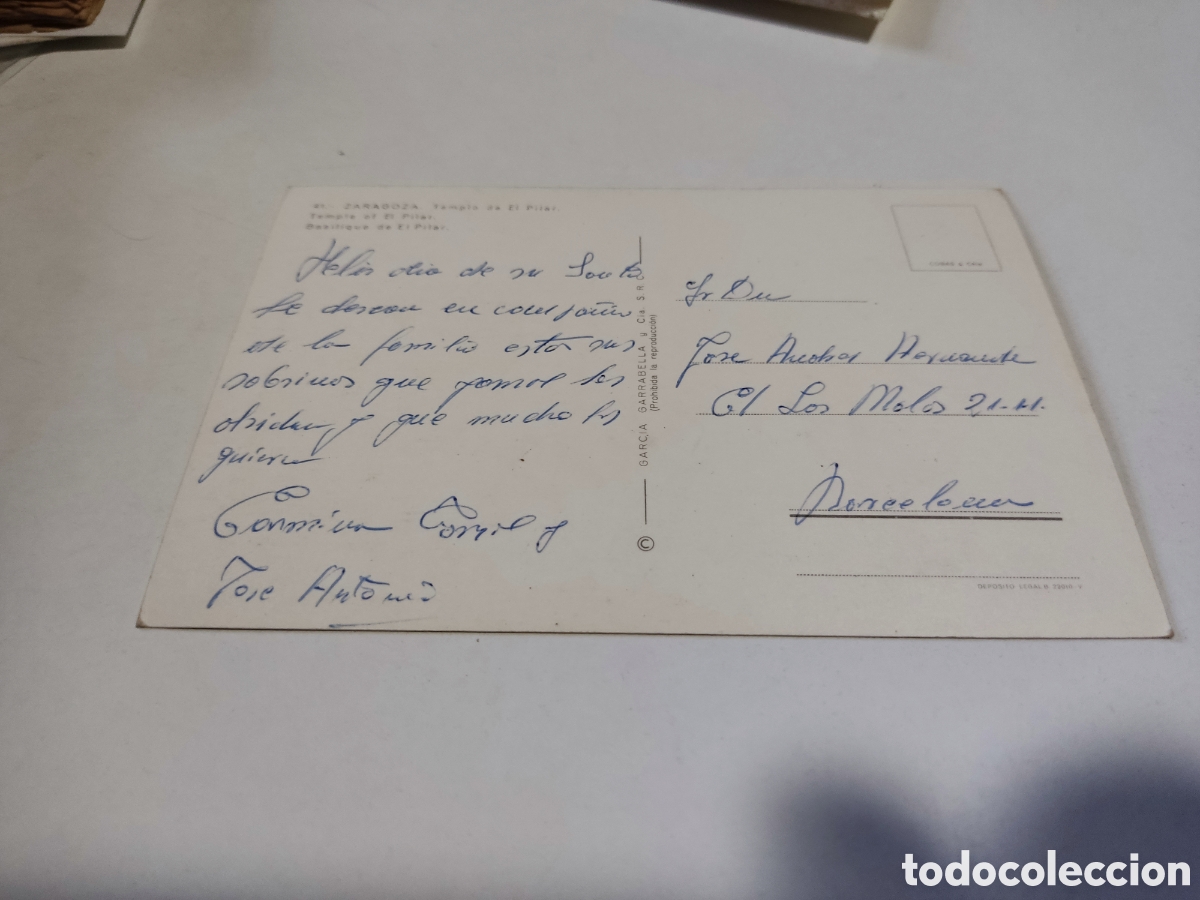 21.- ZARAGOZA. Templo de El Pilar.
Temple of El Pilar.
Basilique de El Pilar.
Helis dia de su Santo
le desean en compañia
de la familia estos sus
sobrinos que jamas les
olvidan y que mucho les
quieren
Carmina y
Jose Antonio
GARCIA GARRABELLA y Cia. S.R.C.
(Prohibida la reproducción)
©
Sr Dn
Jose Hernande
C/ Los 21-11.
Barcelona
DEPOSITO LEGAL B.
todocoleccion